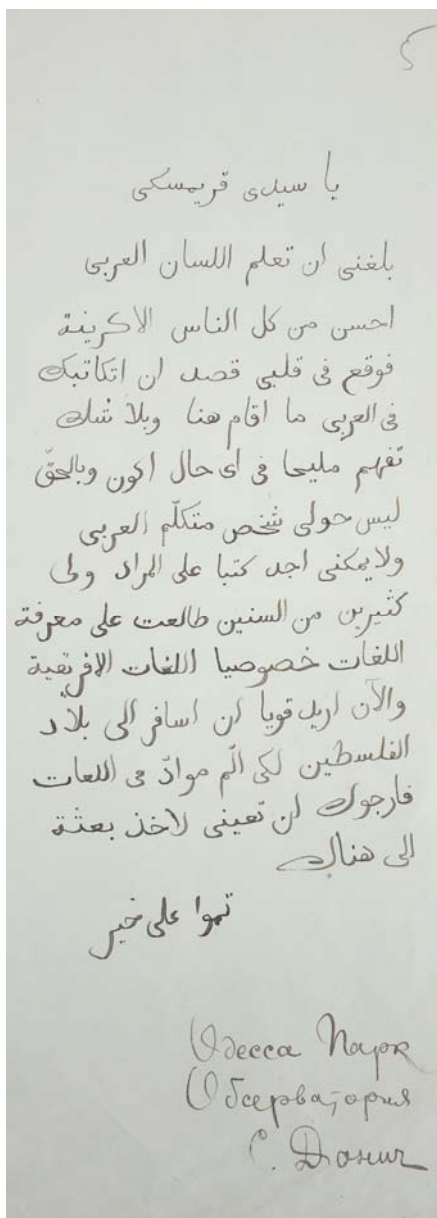 يا سيدى قريمسكى
بلغنى ان تعلم اللسان العربى
احسن من كل الناس الاكرينية
فوقع فى قلبى قصد ان اتكاتبك
فى العربى ما اقام هنا وبلا شك
تفهم مليحا فى اى حال اكون وبالحقّ
ليس حولى شخص متكلّم العربى
ولا يمكنى اجد كتبا على المراد ولى
كثيرين من السنين طالعت على معرفة
اللغات خصوصيا اللغات الافريقية
والآن اريد قويا ان اسافر الى بلاد
الفلسطين لكى الّم موادّ فى اللعات
فارجوك ان تعينى لاخذ بعثة
الى هناك
تموا على خير
Одесса Парк
Обсерваторія
С. Донич